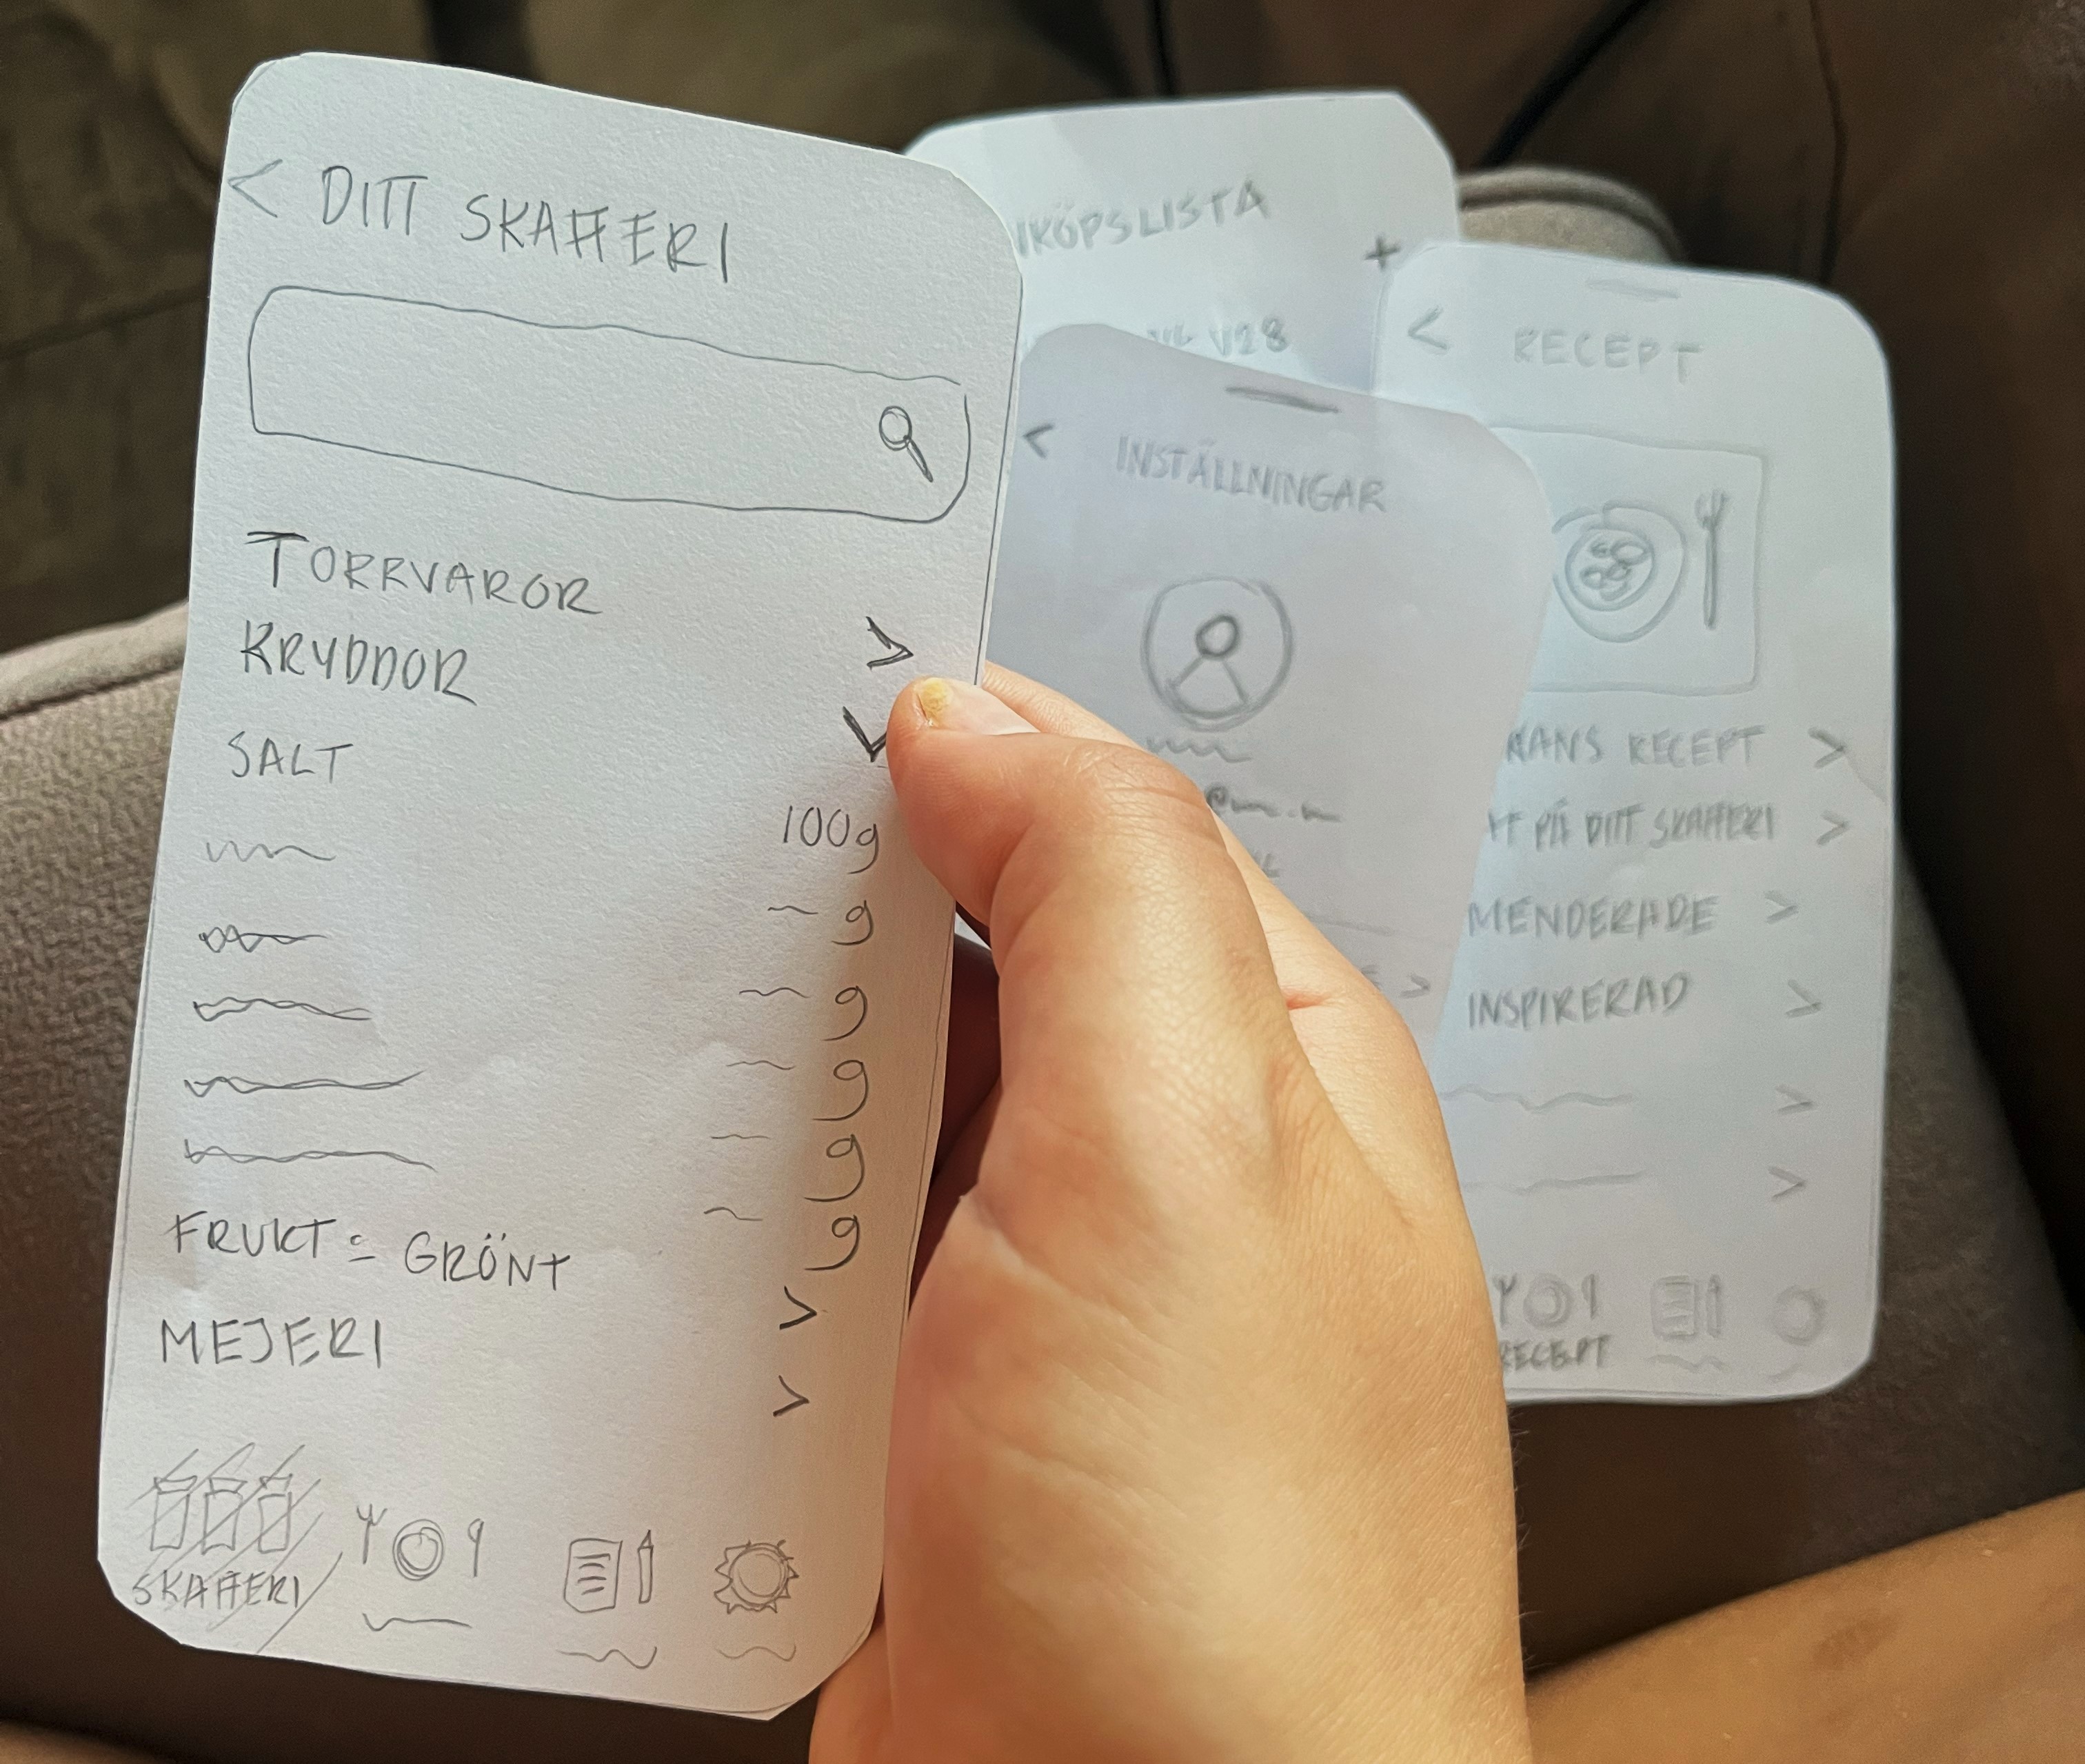 < DITT SKAFFERI
TORRVAROR >
KRYDDOR
SALT 100g
g
g
g
g
g
FRUKT & GRÖNT
MEJERI
SKAFFERI
+
V28
< INSTÄLLNINGAR
>
< RECEPT
RECEPT >
PÅ DITT SKAFFERI >
MENDERADE >
INSPIRERAD >
>
>
RECEPT